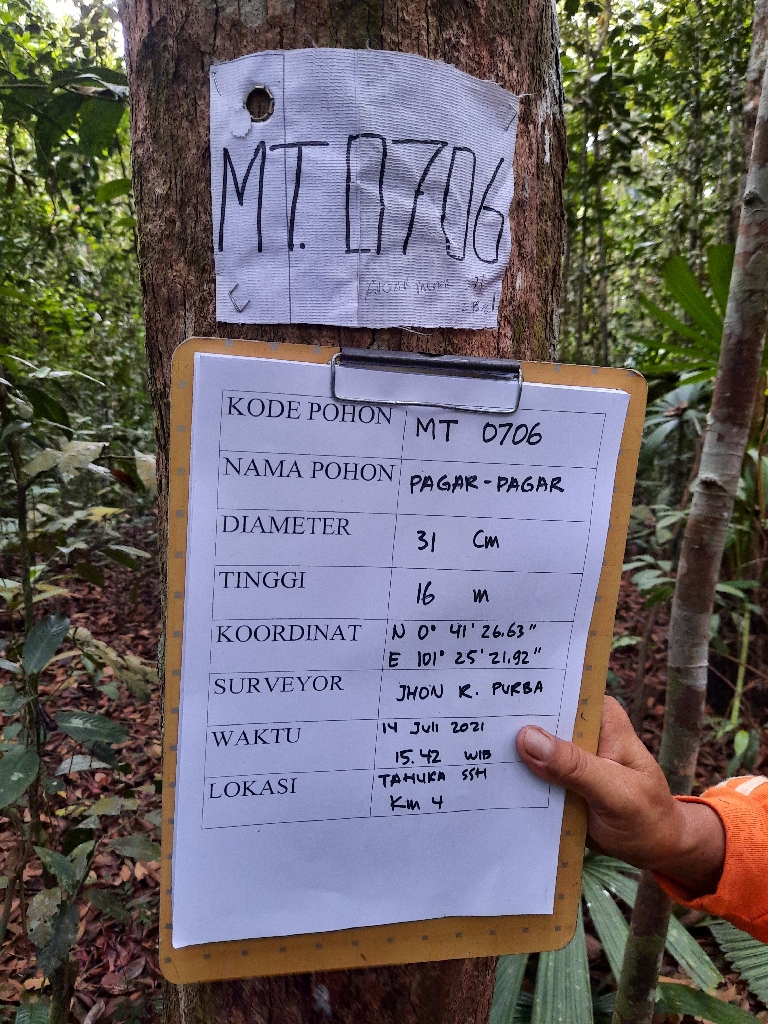 MT. 0706
PAGAR PAGAR
KODE POHON MT 0706
NAMA POHON PAGAR-PAGAR
DIAMETER 31 Cm
TINGGI 16 m
KOORDINAT N 0° 41' 26.63"
E 101° 25' 21.92"
SURVEYOR JHON R. PURBA
WAKTU 14 JULI 2021
15.42 WIB
LOKASI TAHURA SSH
Km 4